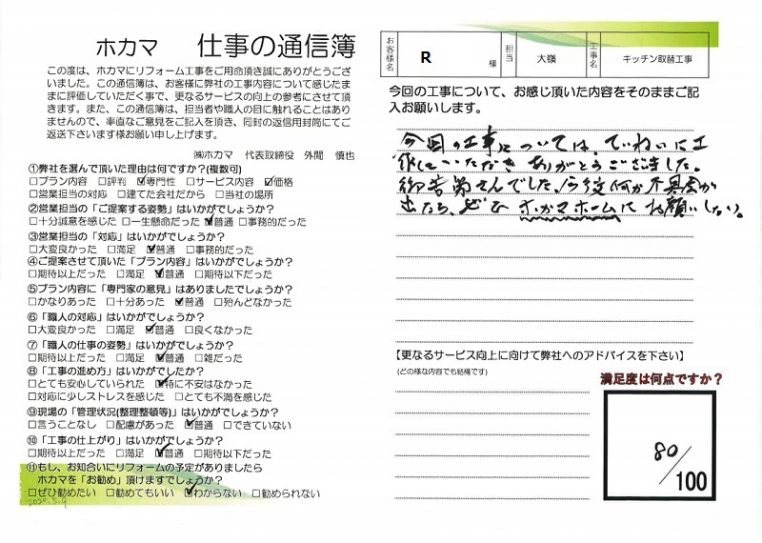 ホカマ 仕事の通信簿
この度は、ホカマにリフォーム工事をご用命頂き誠にありがとうござ
いました。この通信簿は、お客様に弊社の工事内容について感じたま
まに評価していただく事で、更なるサービスの向上の参考にさせて頂
きます。また、この通信簿は、担当者や職人の目に触れることはあり
ませんので、率直なご意見をご記入を頂き、同封の返信用封筒にてご
返送下さいます様お願い申し上げます。
㈱ホカマ 代表取締役 外間 慎也
①弊社を選んで頂いた理由は何ですか?(複数可)
□プラン内容 □評判 ☑専門性 □サービス内容 ☑価格
□営業担当の対応 □建てた会社だから □当社の場所
②営業担当の「ご提案する姿勢」はいかがでしょうか?
□十分誠意を感じた □一生懸命だった ☑普通 □事務的だった
③営業担当の「対応」はいかがでしょうか?
□大変良かった □満足 ☑普通 □事務的だった
④ご提案させて頂いた「プラン内容」はいかがでしょうか?
□期待以上だった □満足 ☑普通 □期待以下だった
⑤プラン内容に「専門家の意見」はありましたでしょうか?
□かなりあった □十分あった ☑普通 □殆んどなかった
⑥「職人の対応」はいかがでしょうか?
□大変良かった □満足 ☑普通 □良くなかった
⑦「職人の仕事の姿勢」はいかがでしょうか?
□期待以上だった □満足 ☑普通 □雑だった
⑧「工事の進め方」はいかがでしたか?
□とても安心していられた ☑特に不安はなかった
□対応に少しストレスを感じた □とても不満を感じた
⑨現場の「管理状況(整理整頓等)」はいかがでしょうか?
□言うことなし □配慮があった ☑普通 □できていない
⑩「工事の仕上がり」はいかがでしょうか?
□期待以上だった □満足 ☑普通 □期待以下だった
⑪もし、お知合いにリフォームの予定がありましたら
ホカマを「お勧め」頂けますでしょうか?
□ぜひ勧めたい □勧めてもいい ☑わからない □勧められない
お客様名 R 様 担当 大嶺 工事名 キッチン取替工事
今回の工事について、お感じ頂いた内容をそのままご記
入お願いします。
今回の工事については、ていねいに工
作していただき ありがとうございました。
御苦労さんでした。今後何か不具合が
出たら、ぜひ ホカマホームに お願いしたい。
【更なるサービス向上に向けて弊社へのアドバイスを下さい】
(どの様な内容でも結構です)
満足度は何点ですか?
80/100